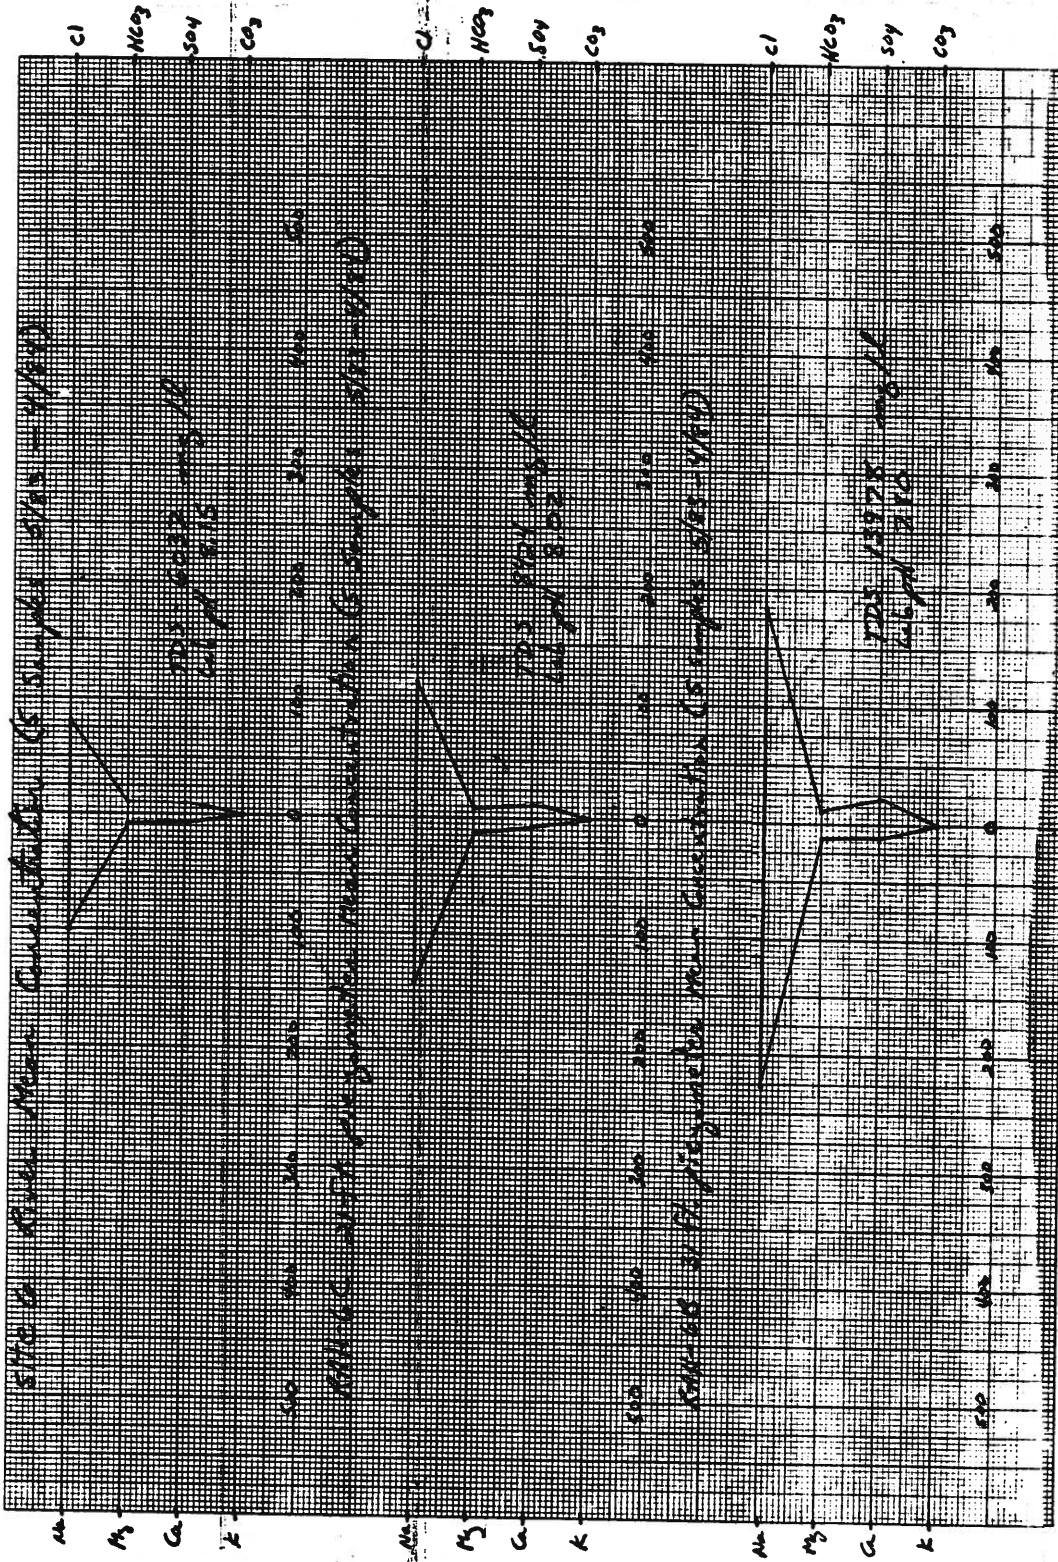 River Mean Concentration (5 Samples 5/83 - 4/84)
Na Cl
Mg HCO3
Ca SO4
K CO3
TDS 6032 mg/l
Lab pH 8.15
500 400 300 200 100 0 100 200 300 400 500
21 ft piezometer Mean Concentration (5 Samples 5/83 - 4/84)
Na Cl
Mg HCO3
Ca SO4
K CO3
TDS 8424 mg/l
Lab pH 8.02
500 400 300 200 100 0 100 200 300 400 500
31 ft. piezometer Mean Concentration (5 samples 5/83 - 4/84)
Na Cl
Mg HCO3
Ca SO4
K CO3
TDS 13978 mg/l
Lab pH
500 400 300 200 100 0 100 200 300 400 500